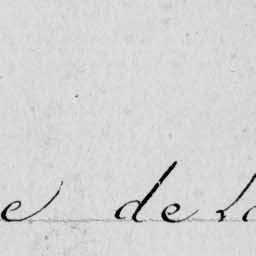 e de la